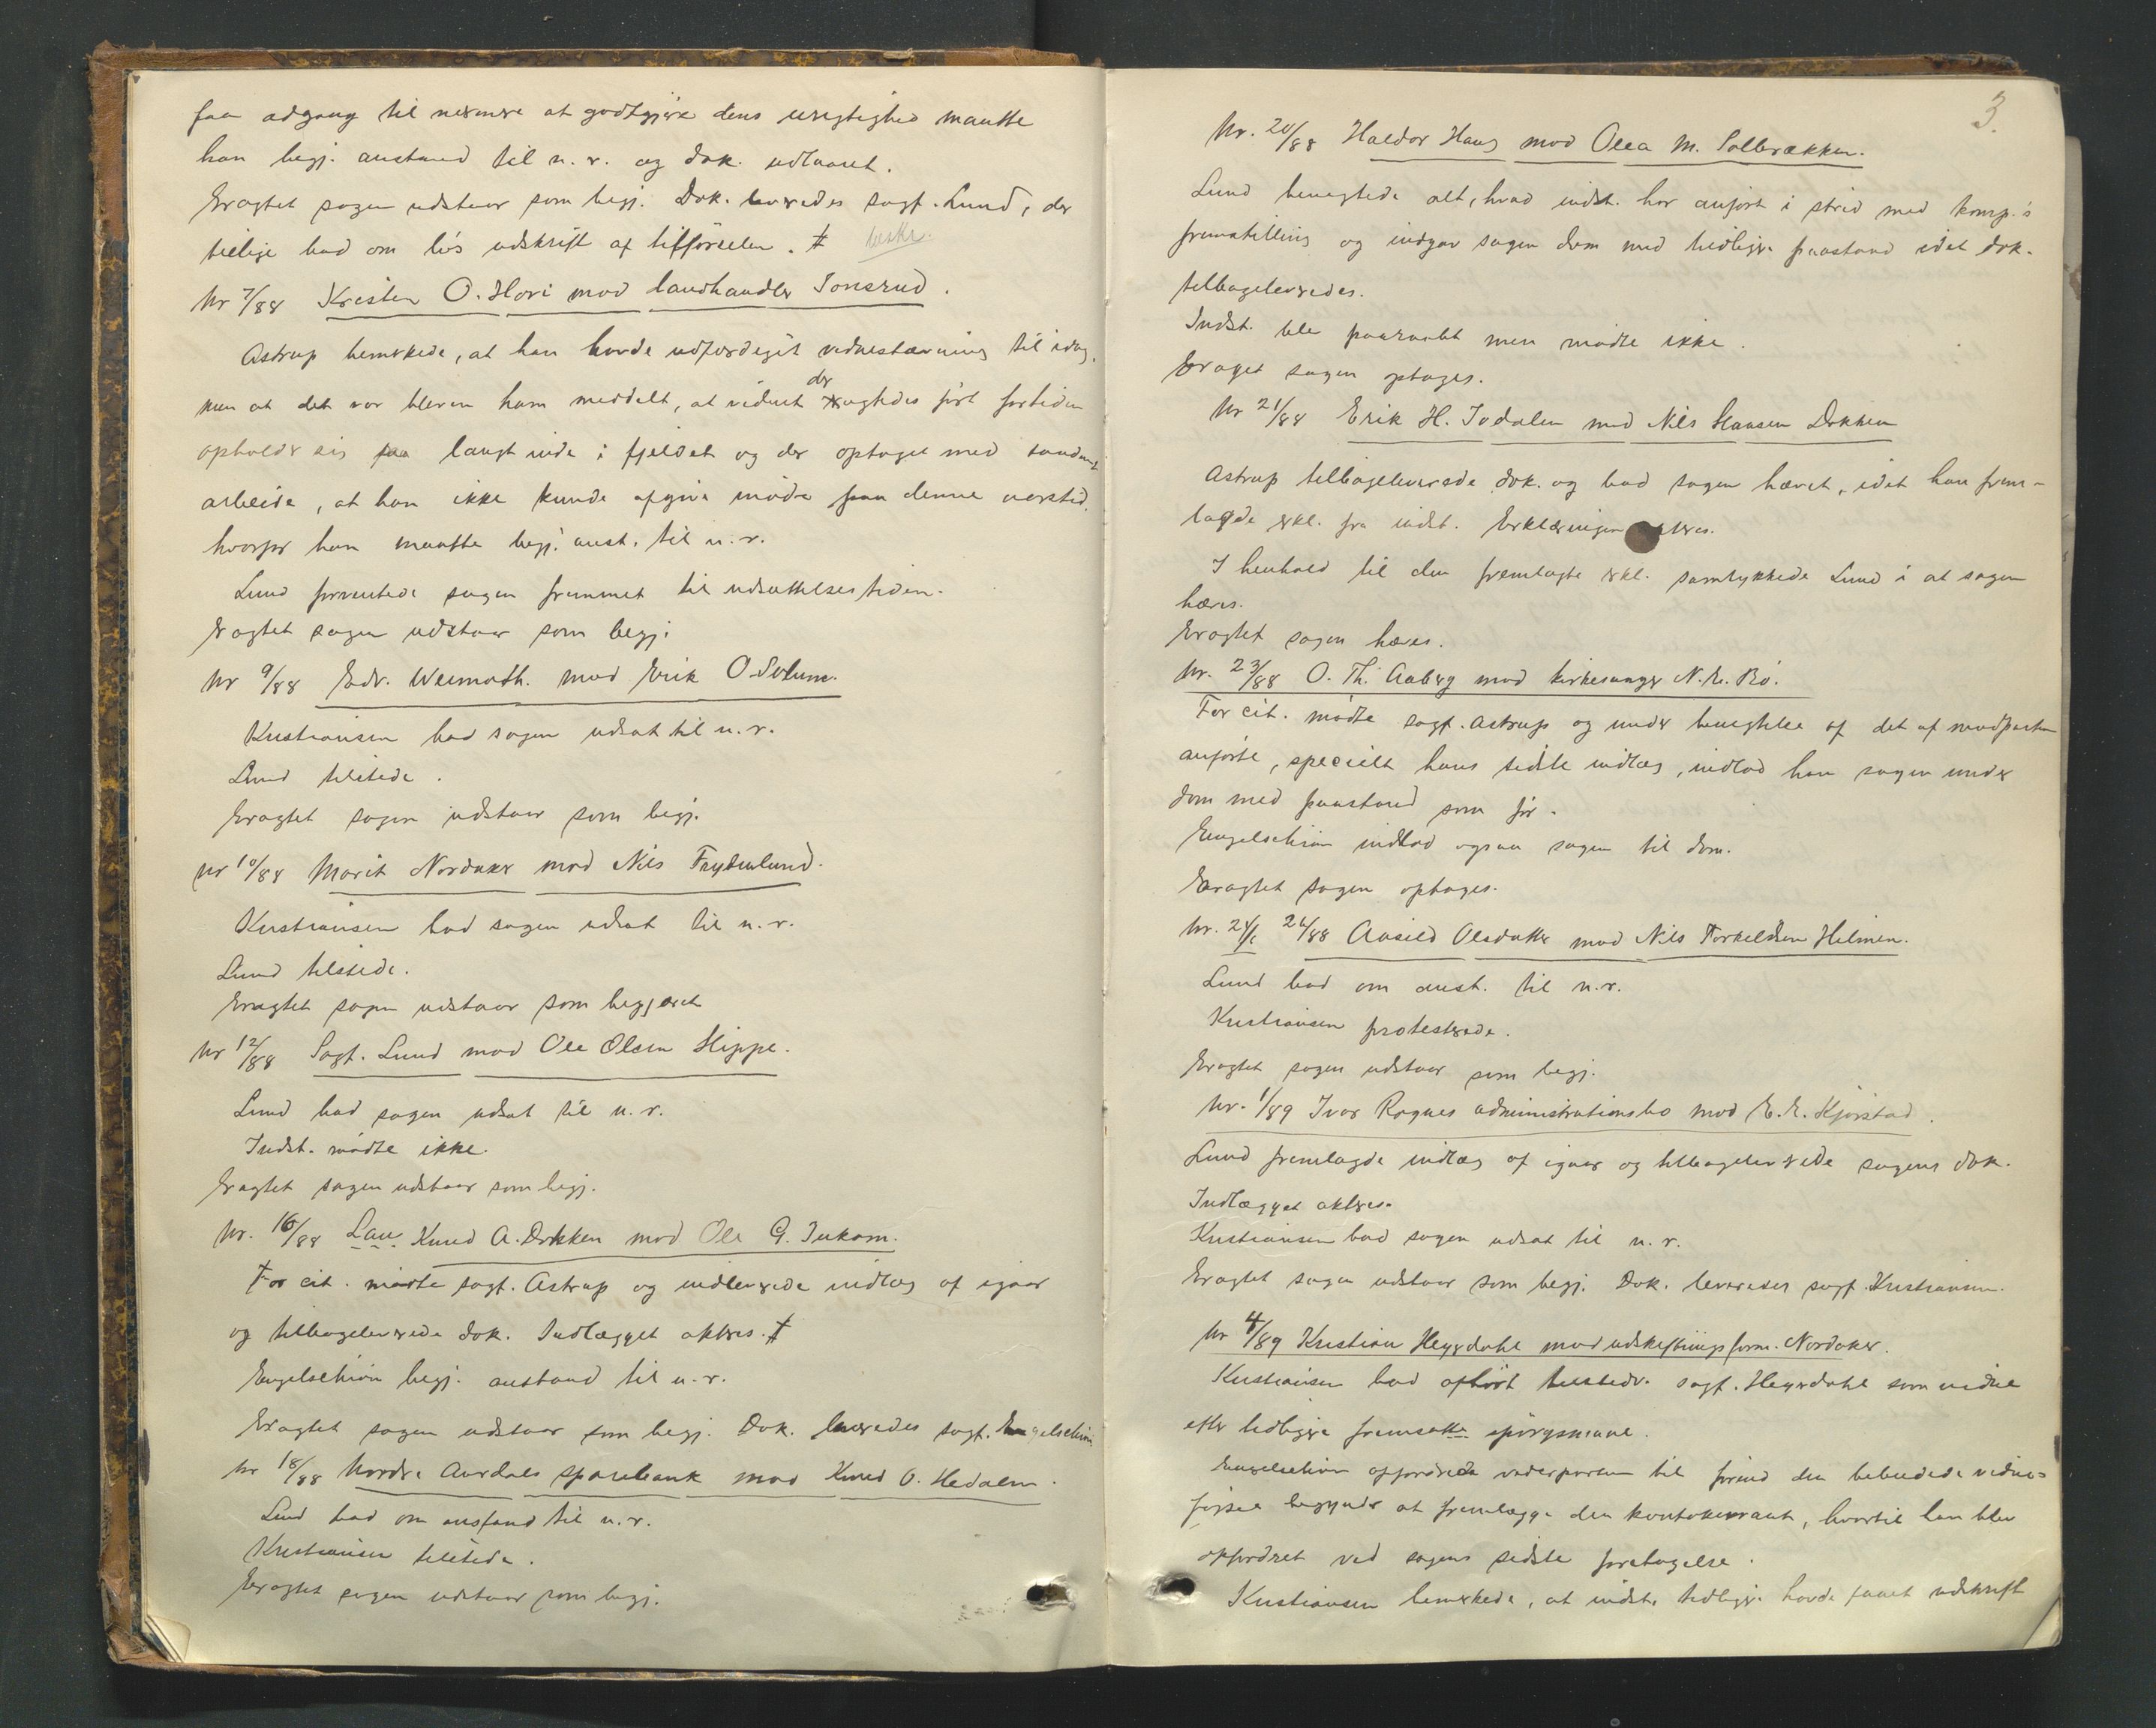 faa adgang til nermere at godtgjøre dens urigtighed maatte
han begj. anstand til n. r. og dok. udlaant.
Eragtet sagen udstaar som begj. Dok. leveredes sagf. Lund, der
tillige bad om løs udskrift af tilførselen. ‡ beskr.
Nr 7/88 Kristen O. Hovi mod landhandler Jonsrud.
Astrup bemerkede, at han havde udferdiget vidnestævning til idag,
men at det var bleven ham meddelt, at vidnet der agtedes ført fortiden
opholder sig langt inde i fjeldet og der optaget med saadant
arbeide, at han ikke kunde afgive møde paa denne aarstid.
hvorfor han maatte begj. anst. til n. r.
Lund forventede sagen fremmet til udsættelsestiden.
Eragtet sagen udstaar som begj.
Nr 9/88 Edv. Weimoth. mod Erik O. Solum.
Kristiansen bad sagen udsat til n. r.
Lund tilstede.
Eragtet sagen udstaar som begj.
Nr 10/88 Marit Nordaker mod Nils Frydenlund.
Kristiansen bad sagen udsat til n. r.
Lund tilstede.
Eragtet sagen udstaar som begjæret
Nr 12/88 Sagf. Lund mod Ole Olsen Hippe.
Lund bad sagen udsat til n. r.
Indst. mødte ikke.
Eragtet sagen udstaar som begj.
Nr. 16/88 Knud A. Dokken mod Ole G. Jukam.
For cit. mødte sagf. Astrup og indleverede indlæg af igaar
og tilbageleverede dok. Indlægget akteres. ‡
Engelschiøn begj. anstand til n. r.
Eragtet sagen udstaar som begj. Dok. leveredes sagf. Engelschiøn
Nr 18/88 Nordre Aurdals sparebank mod Knud O. Hedalen.
Lund bad om anstand til n. r.
Kristiansen tilstede.
Eragtet sagen udstaar som begj.
3.
Nr. 20/88 Haldor Haug mod Olea M. Solbrækken.
Lund benegtede alt, hvad indst. har anført i strid med komp.'s
fremstilling og indgav sagen dom med tidligere paastand idet dok.
tilbageleveredes.
Indst. ble paaraabt men mødte ikke.
Eraget sagen optages.
Nr 21/88 Erik H. Jodalen mod Nils Hansen Dokken
Astrup tilbageleverede dok. og bad sagen hævet, idet han frem-
lagde erkl. fra indst. Erklæringen akteres.
I henhold til den fremlagte erkl. samtykkede Lund i at sagen
hæves.
Eragtet sagen hæves.
Nr. 23/88 O. Th. Aaberg mod kirkesanger N. E. Bø.
For cit. mødte sagf. Astrup og under benegtelse af det af modparten
anførte, specielt hans sidste indlæg, indlod han sagen under
dom med paastand som før.
Engelschiøn indlod ogsaa sagen til dom.
Eragtet sagen optages.
Aasild Olsdatter mod Nils Torkeldsen Hilmen.
Lund bad om anst. til n. r.
Kristiansen protesterede.
Eragtet sagen udstaar som begj.
Nr. 1/89 Ivar Rognes administrationsbo mod E. E. Kjørstad.
Lund fremlagde indlæg af igaar og tilbageleverede sagens dok.
Indlægget akteres.
Kristiansen bad sagen udsat til n. r.
Eragtet sagen udstaar som begj. Dok. leveredes sagf. Kristiansen.
Nr 4/89 Kristian Heyerdahl mod udskiftningsform. Nordaker.
Kristiansen bad afhørt tilstedv. sagf. Heyerdahl som vidne
efter tidligere fremsatte spørgsmaal.
Engelschiøn opfordrede vederparten til førend den bebudede vidne-
førsel begynder at fremlægge den kontokurrant, hvortil han blev
opfordret ved sagens sidste foretagelse.
Kristiansen bemerkede, at indst. tidligere havde faaet udskrift